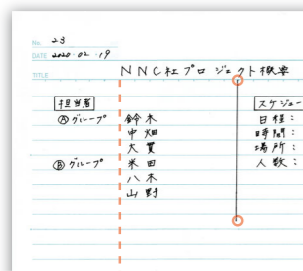 No. 23
DATE 2020・02・19
TITLE NNC社プロジェクト概要
担当者
Ⓐグループ 鈴木
中畑
大貫
Ⓑグループ 米田
八木
山野
スケジュー
日程：
時間：
場所：
人数：